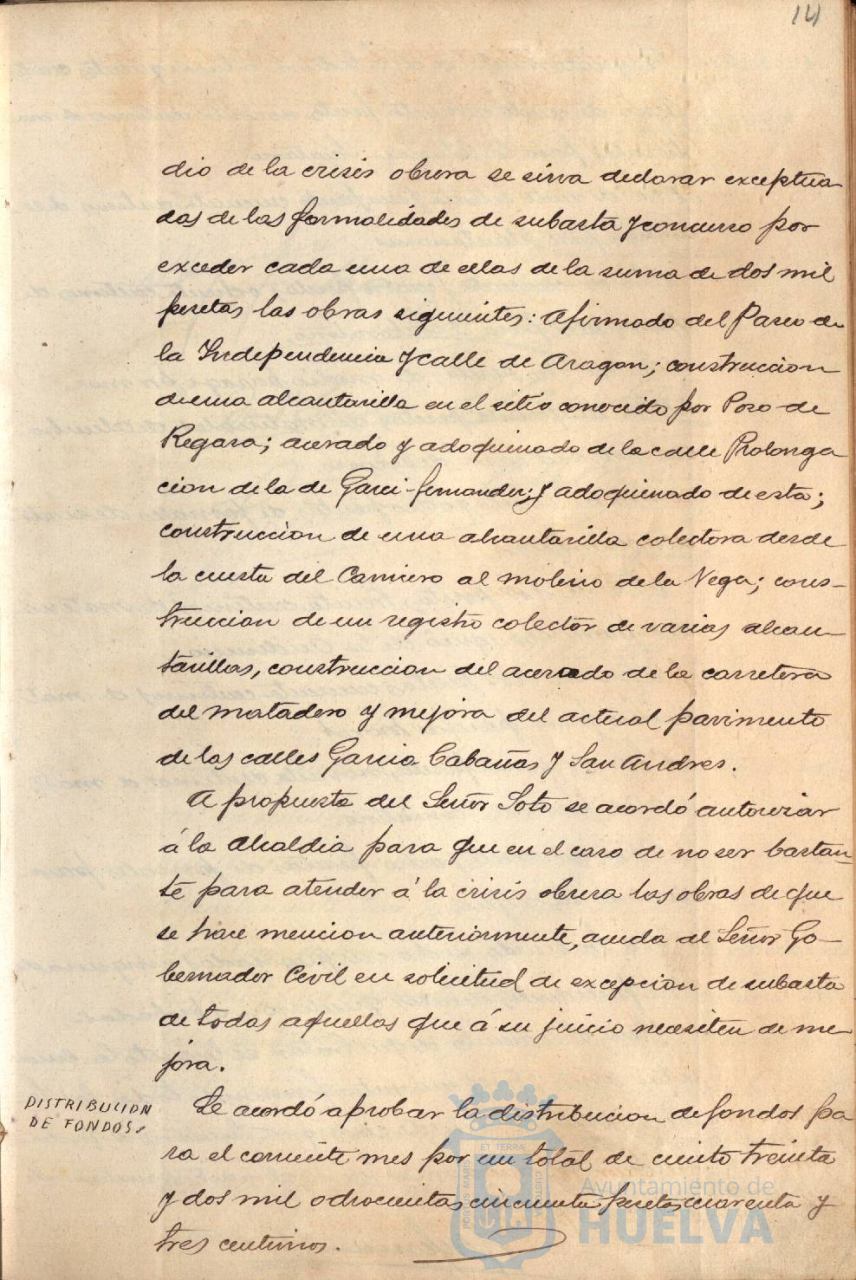 14
dio de la crisis obrera se sirva declarar exceptua
das de las formalidades de subasta y concurso por
exceder cada una de ellas de la suma de dos mil
pesetas las obras siguientes: Afirmado del Paseo de
la Independencia y calle de Aragon; construccion
de una alcantarilla en el sitio conocido por Pozo de
Regara; acerado y adoquinado de la calle Prolonga
cion de la de Garci-fernandez; y adoquinado de esta;
construccion de una alcantarilla colectora desde
la cuesta del Carnicero al molino de la Vega; cons-
truccion de un registro colector de varias alcan
tarillas, construccion del acerado de la carretera
del matadero y mejora del actual pavimento
de las calles Garcia Cabañas y San Andres.
A propuesta del Señor Soto se acordó autorizar
á la Alcaldia para que en el caso de no ser bastan-
te para atender á la crisis obrera las obras de que
se hace mencion anteriormente, acuda al Señor Go-
bernador Civil en solicitud de excepcion de subasta
de todas aquellas que á su juicio necesiten de me
jora.
DISTRIBUCION
DE FONDOS
Se acordó aprobar la distribucion de fondos pa
ra el corriente mes por un total de ciento treinta
y dos mil ochocientas cincuenta pesetas cuarenta y
tres centimos.
Ayuntamiento de
HUELVA